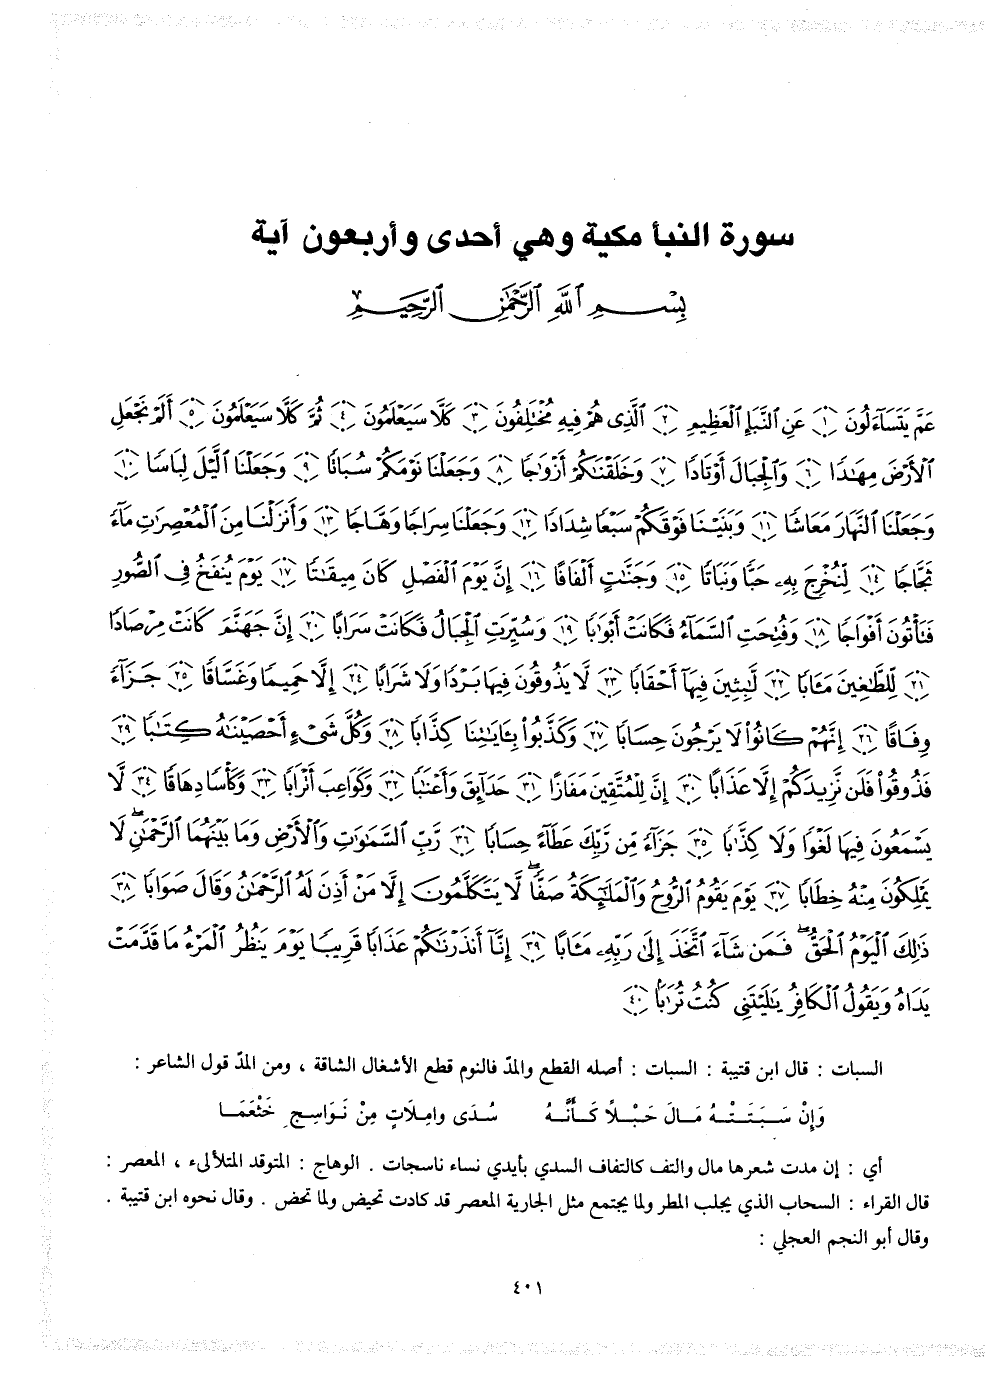 سورة النبأ مكية وهي أحدى وأربعون آية
بِسْمِ ٱللَّهِ ٱلرَّحْمَٰنِ ٱلرَّحِيمِ
عَمَّ يَتَسَآءَلُونَ ١ عَنِ ٱلنَّبَإِ ٱلْعَظِيمِ ٢ ٱلَّذِى هُمْ فِيهِ مُخْتَلِفُونَ ٣ كَلَّا سَيَعْلَمُونَ ٤ ثُمَّ كَلَّا سَيَعْلَمُونَ ٥ أَلَمْ نَجْعَلِ
ٱلْأَرْضَ مِهَٰدًا ٦ وَٱلْجِبَالَ أَوْتَادًا ٧ وَخَلَقْنَٰكُمْ أَزْوَٰجًا ٨ وَجَعَلْنَا نَوْمَكُمْ سُبَاتًا ٩ وَجَعَلْنَا ٱلَّيْلَ لِبَاسًا ١٠
وَجَعَلْنَا ٱلنَّهَارَ مَعَاشًا ١١ وَبَنَيْنَا فَوْقَكُمْ سَبْعًا شِدَادًا ١٢ وَجَعَلْنَا سِرَاجًا وَهَّاجًا ١٣ وَأَنزَلْنَا مِنَ ٱلْمُعْصِرَٰتِ مَآءً
ثَجَّاجًا ١٤ لِّنُخْرِجَ بِهِۦ حَبًّا وَنَبَاتًا ١٥ وَجَنَّٰتٍ أَلْفَافًا ١٦ إِنَّ يَوْمَ ٱلْفَصْلِ كَانَ مِيقَٰتًا ١٧ يَوْمَ يُنفَخُ فِى ٱلصُّورِ
فَتَأْتُونَ أَفْوَاجًا ١٨ وَفُتِحَتِ ٱلسَّمَآءُ فَكَانَتْ أَبْوَٰبًا ١٩ وَسُيِّرَتِ ٱلْجِبَالُ فَكَانَتْ سَرَابًا ٢٠ إِنَّ جَهَنَّمَ كَانَتْ مِرْصَادًا
٢١ لِّلطَّٰغِينَ مَـَٔابًا ٢٢ لَّٰبِثِينَ فِيهَآ أَحْقَابًا ٢٣ لَّا يَذُوقُونَ فِيهَا بَرْدًا وَلَا شَرَابًا ٢٤ إِلَّا حَمِيمًا وَغَسَّاقًا ٢٥ جَزَآءً
وِفَاقًا ٢٦ إِنَّهُمْ كَانُوا۟ لَا يَرْجُونَ حِسَابًا ٢٧ وَكَذَّبُوا۟ بِـَٔايَٰتِنَا كِذَّابًا ٢٨ وَكُلَّ شَىْءٍ أَحْصَيْنَٰهُ كِتَٰبًا ٢٩
فَذُوقُوا۟ فَلَن نَّزِيدَكُمْ إِلَّا عَذَابًا ٣٠ إِنَّ لِلْمُتَّقِينَ مَفَازًا ٣١ حَدَآئِقَ وَأَعْنَٰبًا ٣٢ وَكَوَاعِبَ أَتْرَابًا ٣٣ وَكَأْسًا دِهَاقًا ٣٤ لَّا
يَسْمَعُونَ فِيهَا لَغْوًا وَلَا كِذَّٰبًا ٣٥ جَزَآءً مِّن رَّبِّكَ عَطَآءً حِسَابًا ٣٦ رَّبِّ ٱلسَّمَٰوَٰتِ وَٱلْأَرْضِ وَمَا بَيْنَهُمَا ٱلرَّحْمَٰنِ ۖ لَا
يَمْلِكُونَ مِنْهُ خِطَابًا ٣٧ يَوْمَ يَقُومُ ٱلرُّوحُ وَٱلْمَلَٰٓئِكَةُ صَفًّا ۖ لَّا يَتَكَلَّمُونَ إِلَّا مَنْ أَذِنَ لَهُ ٱلرَّحْمَٰنُ وَقَالَ صَوَابًا ٣٨
ذَٰلِكَ ٱلْيَوْمُ ٱلْحَقُّ ۖ فَمَن شَآءَ ٱتَّخَذَ إِلَىٰ رَبِّهِۦ مَـَٔابًا ٣٩ إِنَّآ أَنذَرْنَٰكُمْ عَذَابًا قَرِيبًا يَوْمَ يَنظُرُ ٱلْمَرْءُ مَا قَدَّمَتْ
يَدَاهُ وَيَقُولُ ٱلْكَافِرُ يَٰلَيْتَنِى كُنتُ تُرَٰبًۢا ٤٠
السبات : قال ابن قتيبة : السبات : أصله القطع والمدّ فالنوم قطع الأشغال الشاقة ، ومن المدّ قول الشاعر :
وَإِنْ سَبَتَتْهُ مَالَ حَبْلاً كَأَنَّهُ سُدَى وامِلَاتٍ مِنْ نَوَاسِجِ خَثْعَمَا
أي : إن مدت شعرها مال والتف كالتفاف السدي بأيدي نساء ناسجات . الوهاج : المتوقد المتلألىء ، المعصر :
قال القراء : السحاب الذي يجلب المطر ولما يجتمع مثل الجارية المعصر قد كادت تحيض ولما تحض . وقال نحوه ابن قتيبة .
وقال أبو النجم العجلي :
٤٠١